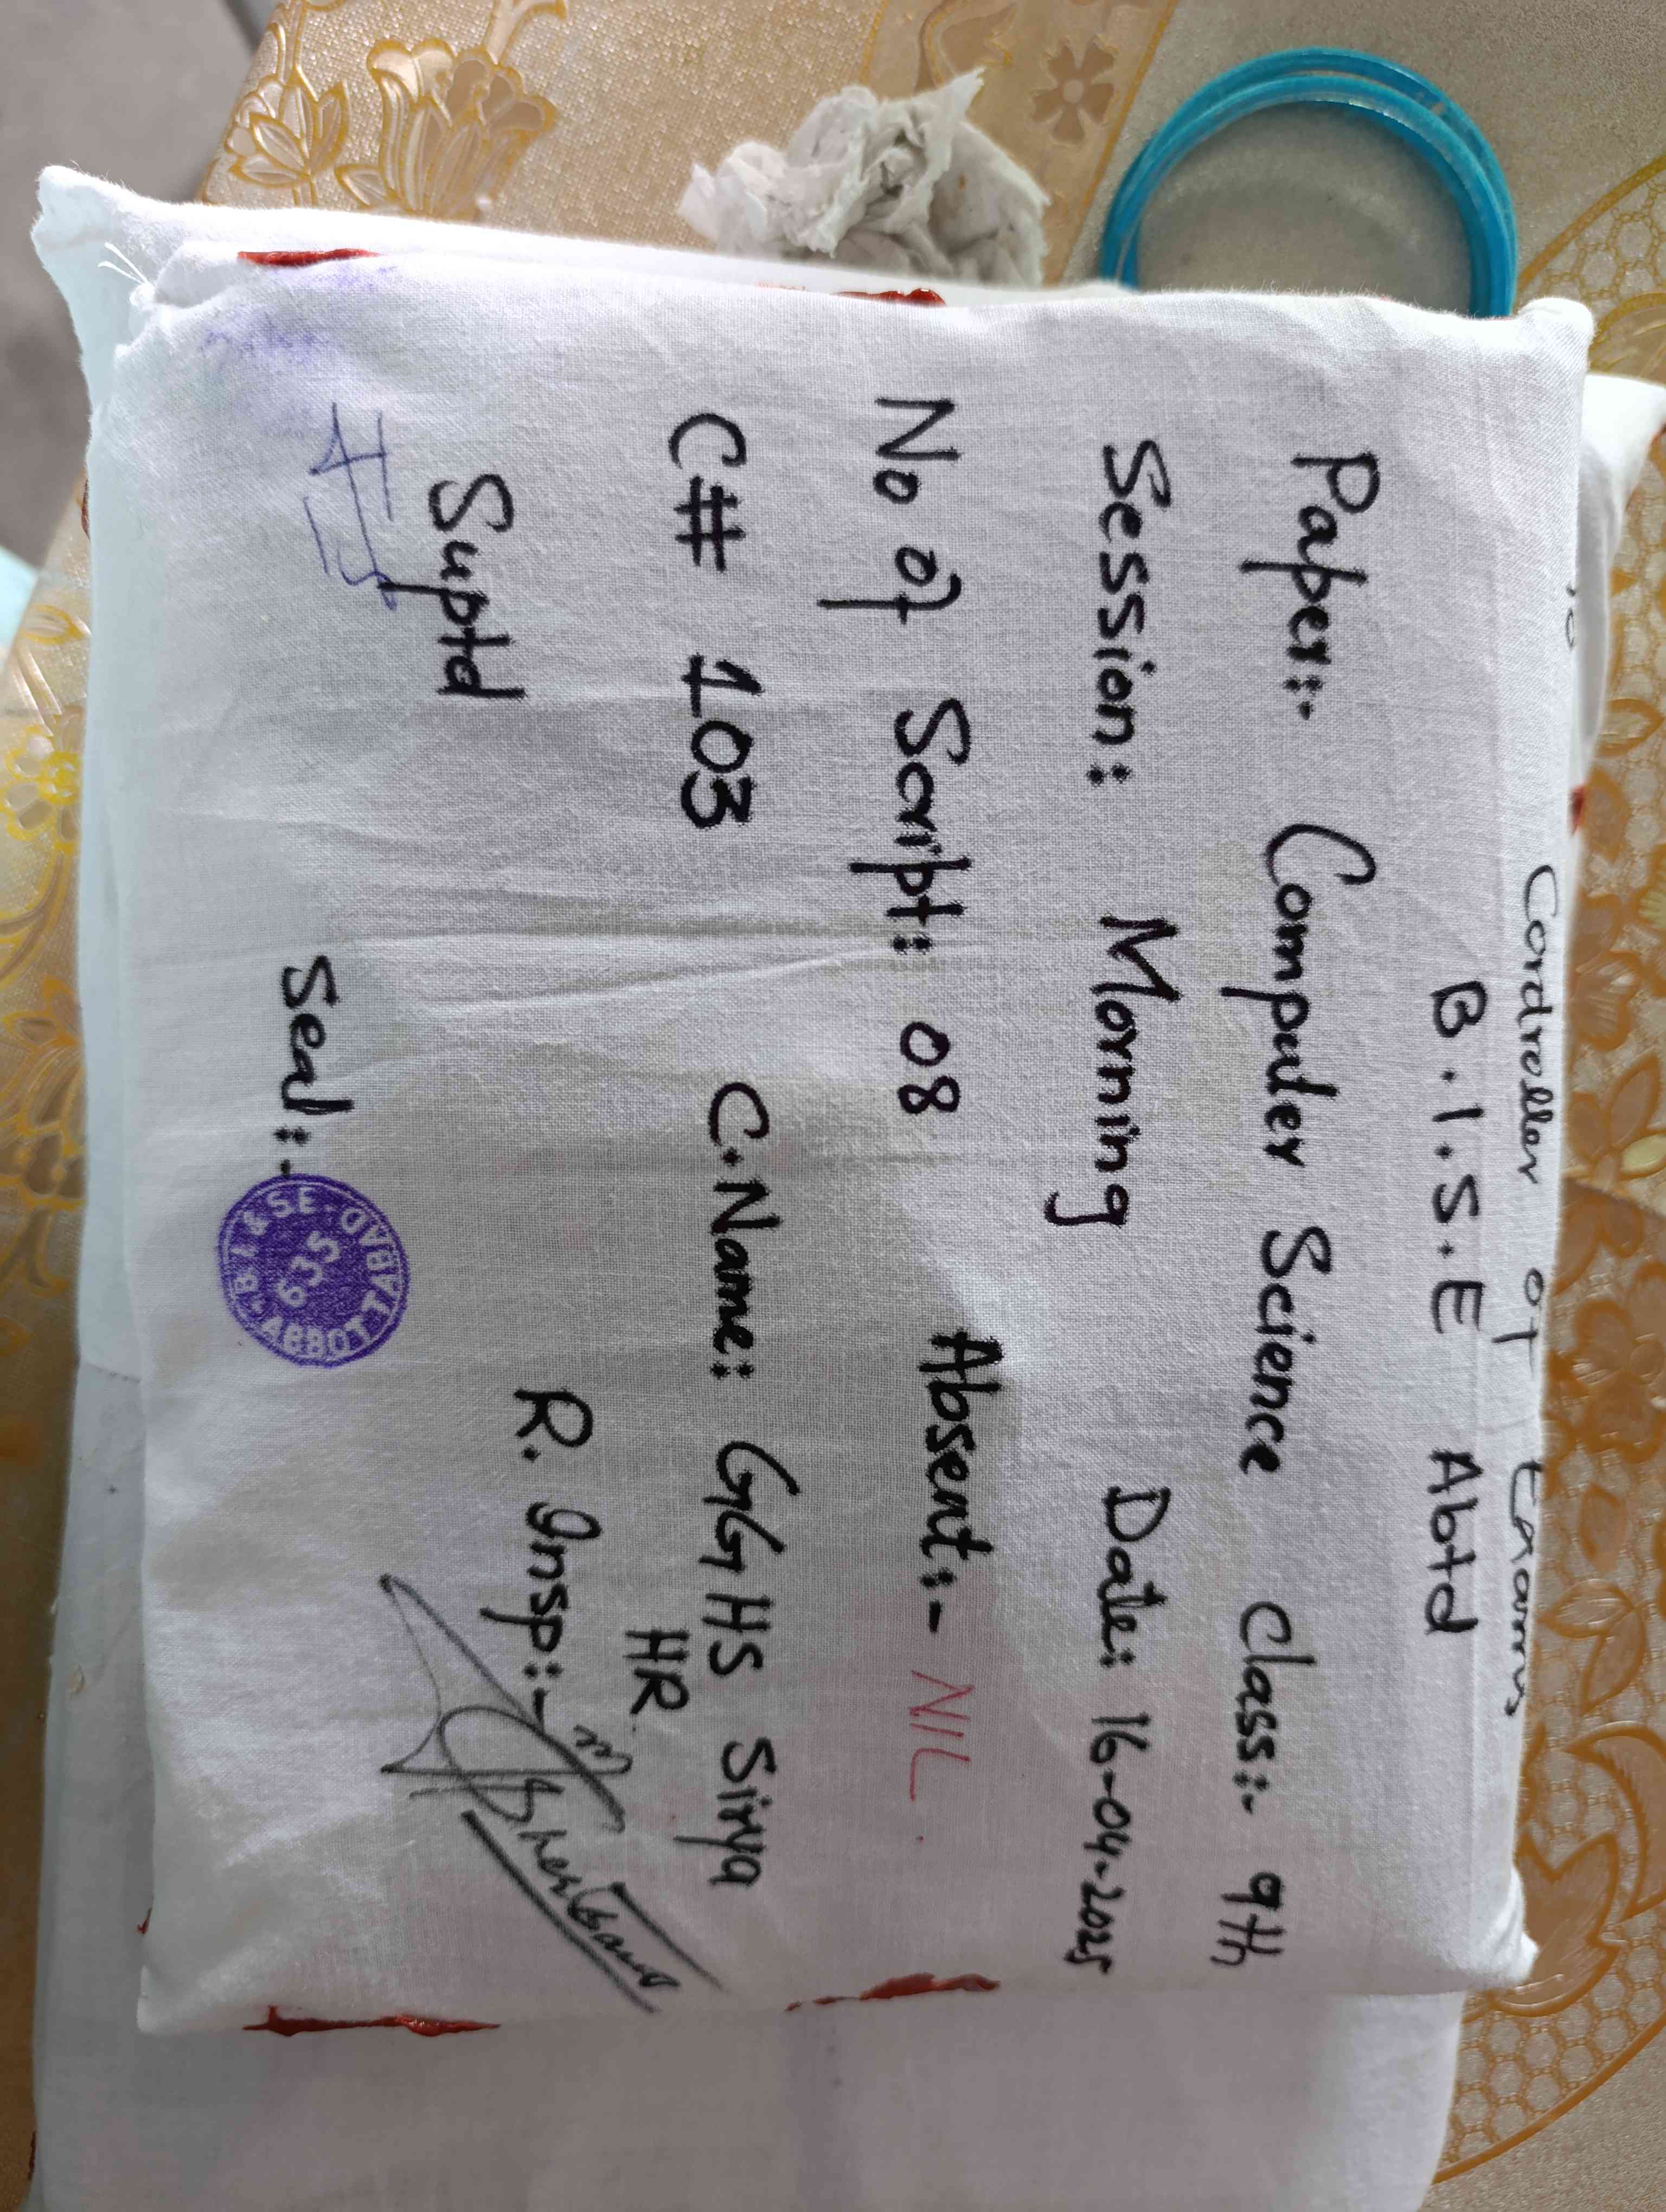 To
Controller of Exams
B.I.S.E Abtd
Paper:- Computer Science Class:- 9th
Session: Morning Date: 16-04-2025
No of Script: 08 Absent:- NIL.
C# 103 C.Name: GGHS Sirya
HR
Suptd R. Insp:-
Seal:-
B.I & SE. ABBOTTABAD
635